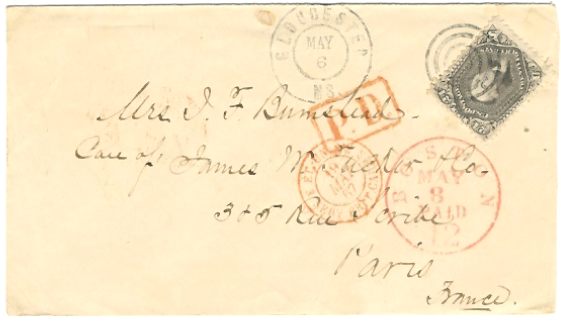 GLOUCESTER
MAY
6
MS.
Mrs J. F. Bumstead
P.D.
Care of James M Tucker & Co.
BOSTON
MAY
8
PAID
12
3 & 5 Rue Scribe
Paris
France.